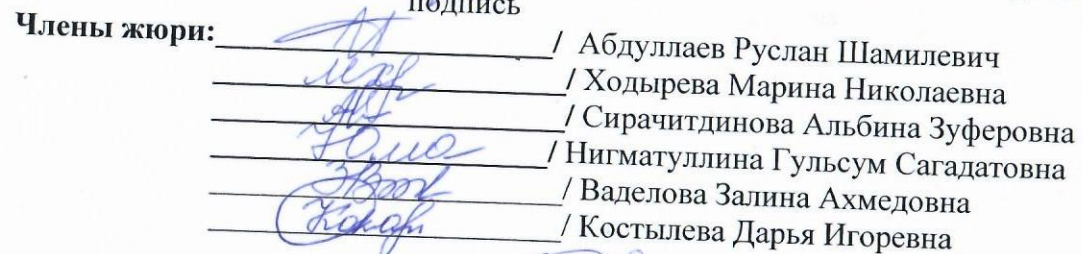 подпись
Члены жюри:____________/ Абдуллаев Руслан Шамилевич
____________/ Ходырева Марина Николаевна
____________/ Сирачитдинова Альбина Зуферовна
____________/ Нигматуллина Гульсум Сагадатовна
____________/ Ваделова Залина Ахмедовна
____________/ Костылева Дарья Игоревна